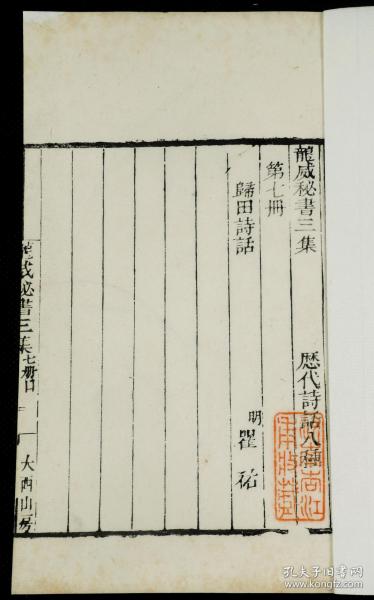 龍威秘書三集　歷代詩話八種
第七册
歸田詩話　明　瞿祐
龍威秘書三集　七册目　一　大酉山房
孔夫子旧书网